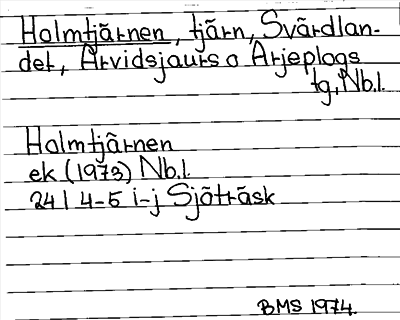 Holmtjärnen, tjärn, Svärdlan-
det, Arvidsjaurs o Arjeplogs
tg, Nb.l.
Holmtjärnen
ek (1973) Nb.l.
24I 4-5 i-j Sjöträsk
BMS 1974.